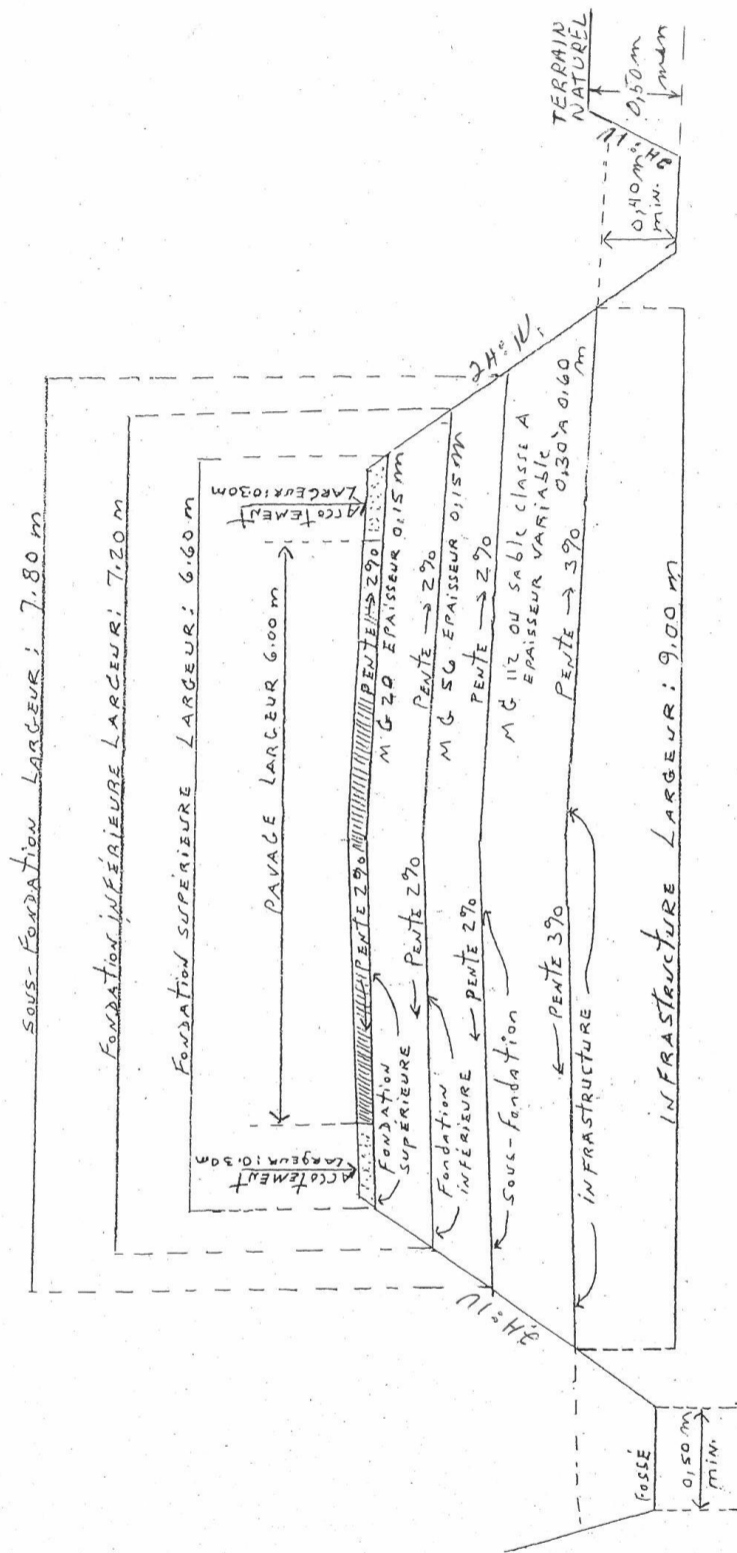 SOUS-FONDATION LARGEUR: 7.80 m
FONDATION INFÉRIEURE LARGEUR: 7.20 m
FONDATION SUPÉRIEURE LARGEUR: 6.60 m
PAVAGE LARGEUR 6.00 m
ACCOTEMENT
LARGEUR: 0.30 m
ACCOTEMENT
LARGEUR: 0.30 m
PENTE 2%
PENTE → 2%
FONDATION
SUPÉRIEURE
MG 20 EPAISSEUR 0.15 m
← PENTE 2%
PENTE → 2%
FONDATION
INFÉRIEURE
MG 56 EPAISSEUR 0,15 m
← PENTE 2%
PENTE → 2%
SOUS-FONDATION
MG 112 OU SABLE CLASSE A
EPAISSEUR VARIABLE
0.30 À 0.60
m
← PENTE 3%
PENTE → 3%
INFRASTRUCTURE
INFRASTRUCTURE LARGEUR: 9,00 m
2H:1V
2H:1V
FOSSÉ
0,50 m
MIN.
TERRAIN
NATUREL
2H:1V
0,40 m
min.
0,50 m